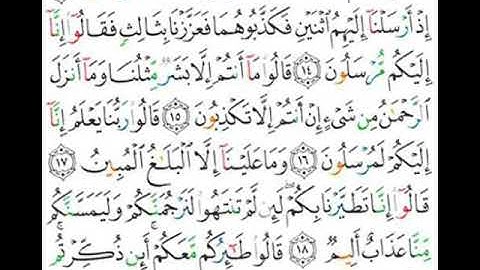 إِذْ أَرْسَلْنَا إِلَيْهِمُ ٱثْنَيْنِ فَكَذَّبُوهُمَا فَعَزَّزْنَا بِثَالِثٍ فَقَالُوٓا۟ إِنَّآ
إِلَيْكُم مُّرْسَلُونَ ١٤ قَالُوا۟ مَآ أَنتُمْ إِلَّا بَشَرٌ مِّثْلُنَا وَمَآ أَنزَلَ
ٱلرَّحْمَٰنُ مِن شَىْءٍ إِنْ أَنتُمْ إِلَّا تَكْذِبُونَ ١٥ قَالُوا۟ رَبُّنَا يَعْلَمُ إِنَّآ
إِلَيْكُمْ لَمُرْسَلُونَ ١٦ وَمَا عَلَيْنَآ إِلَّا ٱلْبَلَٰغُ ٱلْمُبِينُ ١٧
قَالُوٓا۟ إِنَّا تَطَيَّرْنَا بِكُمْ ۖ لَئِن لَّمْ تَنتَهُوا۟ لَنَرْجُمَنَّكُمْ وَلَيَمَسَّنَّكُم
مِّنَّا عَذَابٌ أَلِيمٌ ١٨ قَالُوا۟ طَٰٓئِرُكُم مَّعَكُمْ ۚ أَئِن ذُكِّرْتُم ۚ